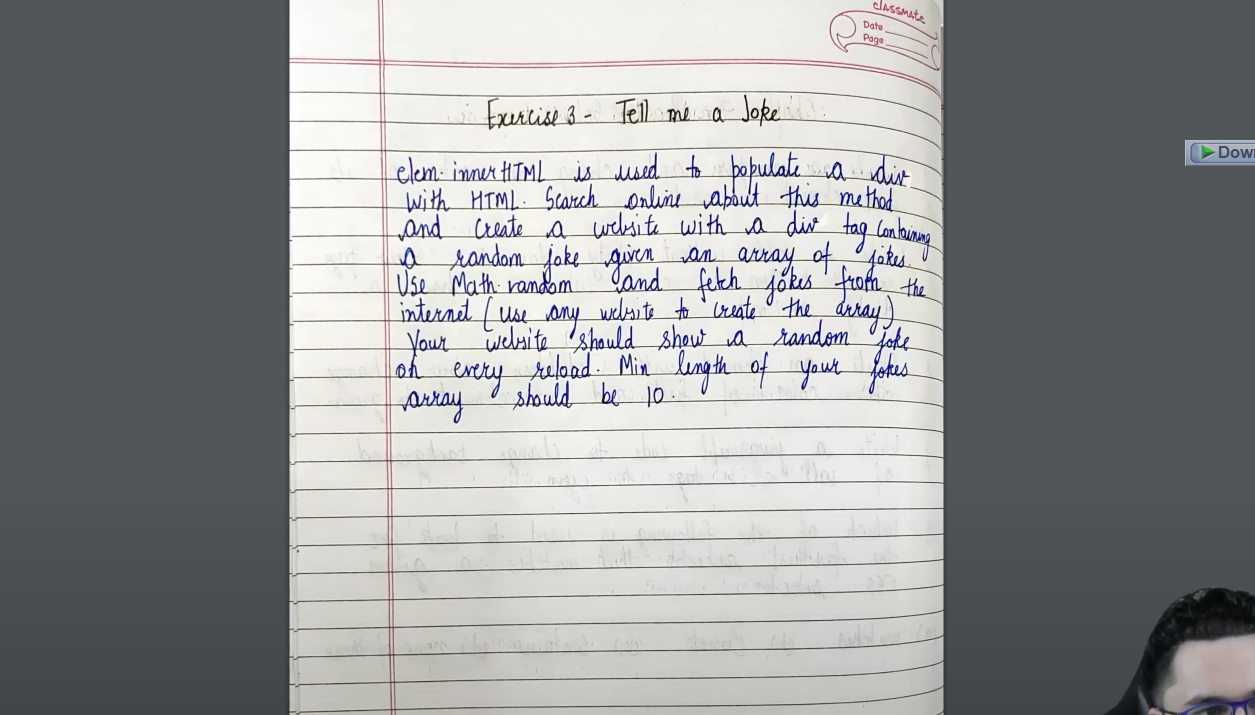 classmate
Date
Page
Exercise 3 - Tell me a Joke
elem.innerHTML is used to populate a div
with HTML. Search online about this method
and create a website with a div tag containing
a random joke given an array of jokes.
Use Math.random and fetch jokes from the
internet (use any website to create the array)
Your website should show a random joke
on every reload. Min length of your jokes
array should be 10.
Down